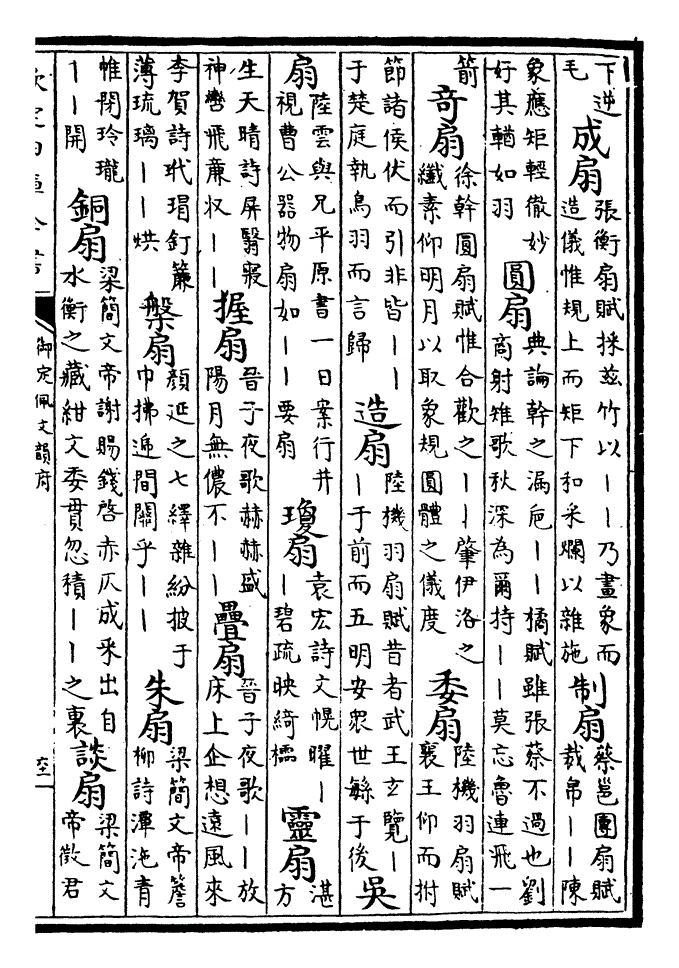 下逆
毛
成扇
張衡扇賦採兹竹以丨丨乃畫象而
造儀惟規上而矩下和采爛以雜施
制扇
蔡邕團扇賦
裁帛丨丨陳
象應矩輕徹妙
好其輶如羽
圓扇
典論幹之漏卮丨丨橘賦雖張蔡不過也劉
商射雉歌秋深為爾持丨丨莫忘魯連飛一
箭
奇扇
徐幹圓扇賦惟合歡之丨丨肇伊洛之
纖素仰明月以取象規圓體之儀度
委扇
陸機羽扇賦
襄王仰而拊
節諸侯伏而引非皆丨丨
于楚庭執鳥羽而言歸
造扇
陸機羽扇賦昔者武王玄覽丨
丨于前而五明安衆世繇于後
吳
扇
陸雲與兄平原書一日案行并
視曹公器物扇如丨丨要扇
瓊扇
袁宏詩文幌曜丨
丨碧疏映綺櫺
靈扇
湛
方
生天晴詩屏翳寢
神轡飛亷收丨丨
握扇
晉子夜歌赫赫盛
陽月無儂不丨丨
疊扇
晉子夜歌丨丨放
床上企想遠風來
李賀詩玳瑁釘簾
薄琉璃丨丨烘
槃扇
顔延之七繹雜紛披于
巾拂遞間關乎丨丨
朱扇
梁簡文帝簷
柳詩潭沲青
帷閉玲瓏
丨丨開
銅扇
梁簡文帝謝賜錢啓赤仄成釆出自
水衡之藏紺文委貫忽積丨丨之裏
談扇
梁簡文
帝徵君
御定佩文韻府